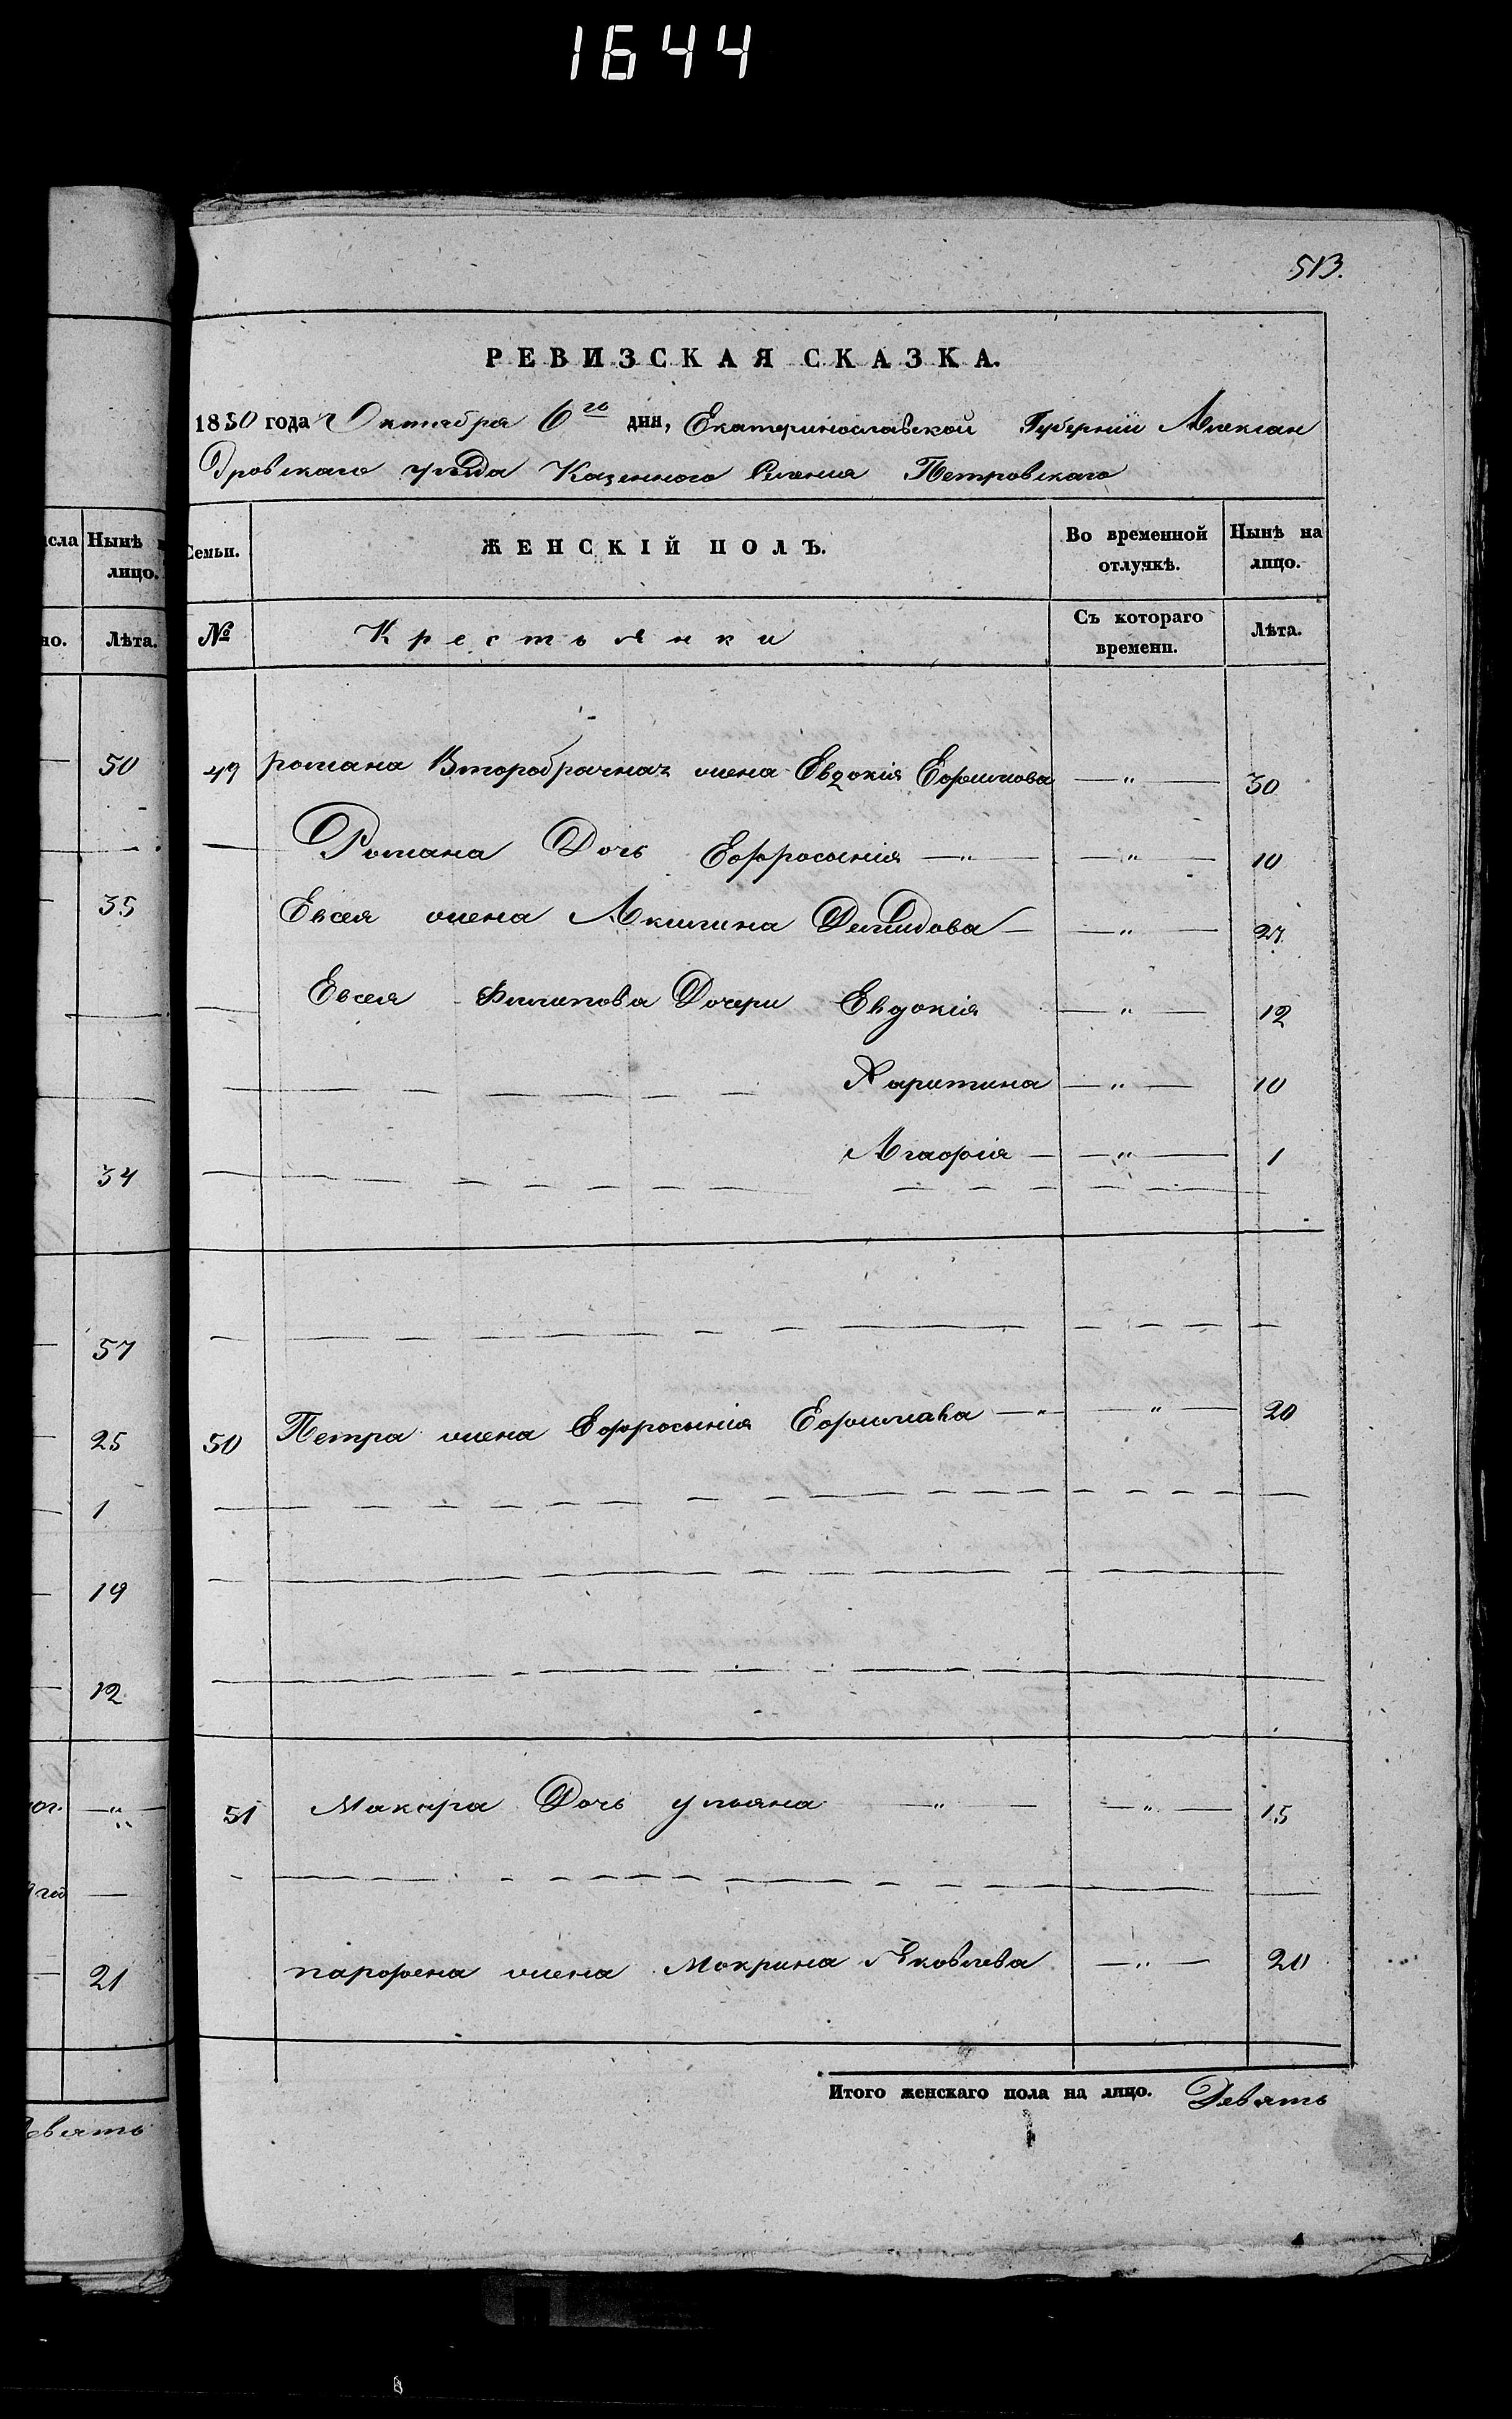 1644
513.
РЕВИЗСКАЯ СКАЗКА.
1850 года Октября 6го дня, Екатеринославской Губернии Алексан
Дровскаго уѣзда Казенного Селения Петровскаго
исла Нынѣ
лицо.
но. Лѣта.
Семьи. ЖЕНСКІЙ ПОЛЪ. Во временной отлучкѣ. Нынѣ на лицо.
№ Крестьянки Съ котораго времени. Лѣта.
50
35
34
57
25
1
19
12
21
евять
49 романа Второбрачная жена Евдокія Ефимова — " — 30
Романа Дочь Ефросинія — " — — " — 10
Евсея жена Акилина Демидова — — " — 27
Евсея Филипова Дочери Евдокія — " — 12
Харитина — " — 10
Агафія — — " — 1
50 Петра жена Ефросинія Ефимова — " — — " — 20
51 Макара Дочь ульяна — " — — " — 15
парфена жена Мокрина Яковлева — " — 20
Итого женскаго пола на лицо. Девять